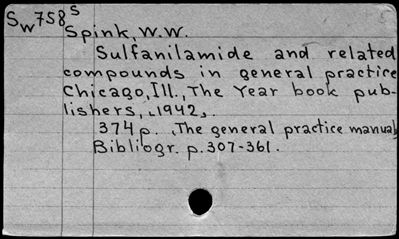 Sw758s
Spink, W.W.
Sulfanilamide and related
compounds in general practice
Chicago, Ill., The Year book pub-
lishers, ˻1942˼.
374 p. ˻The general practice manual
Bibliogr. p. 307-361.